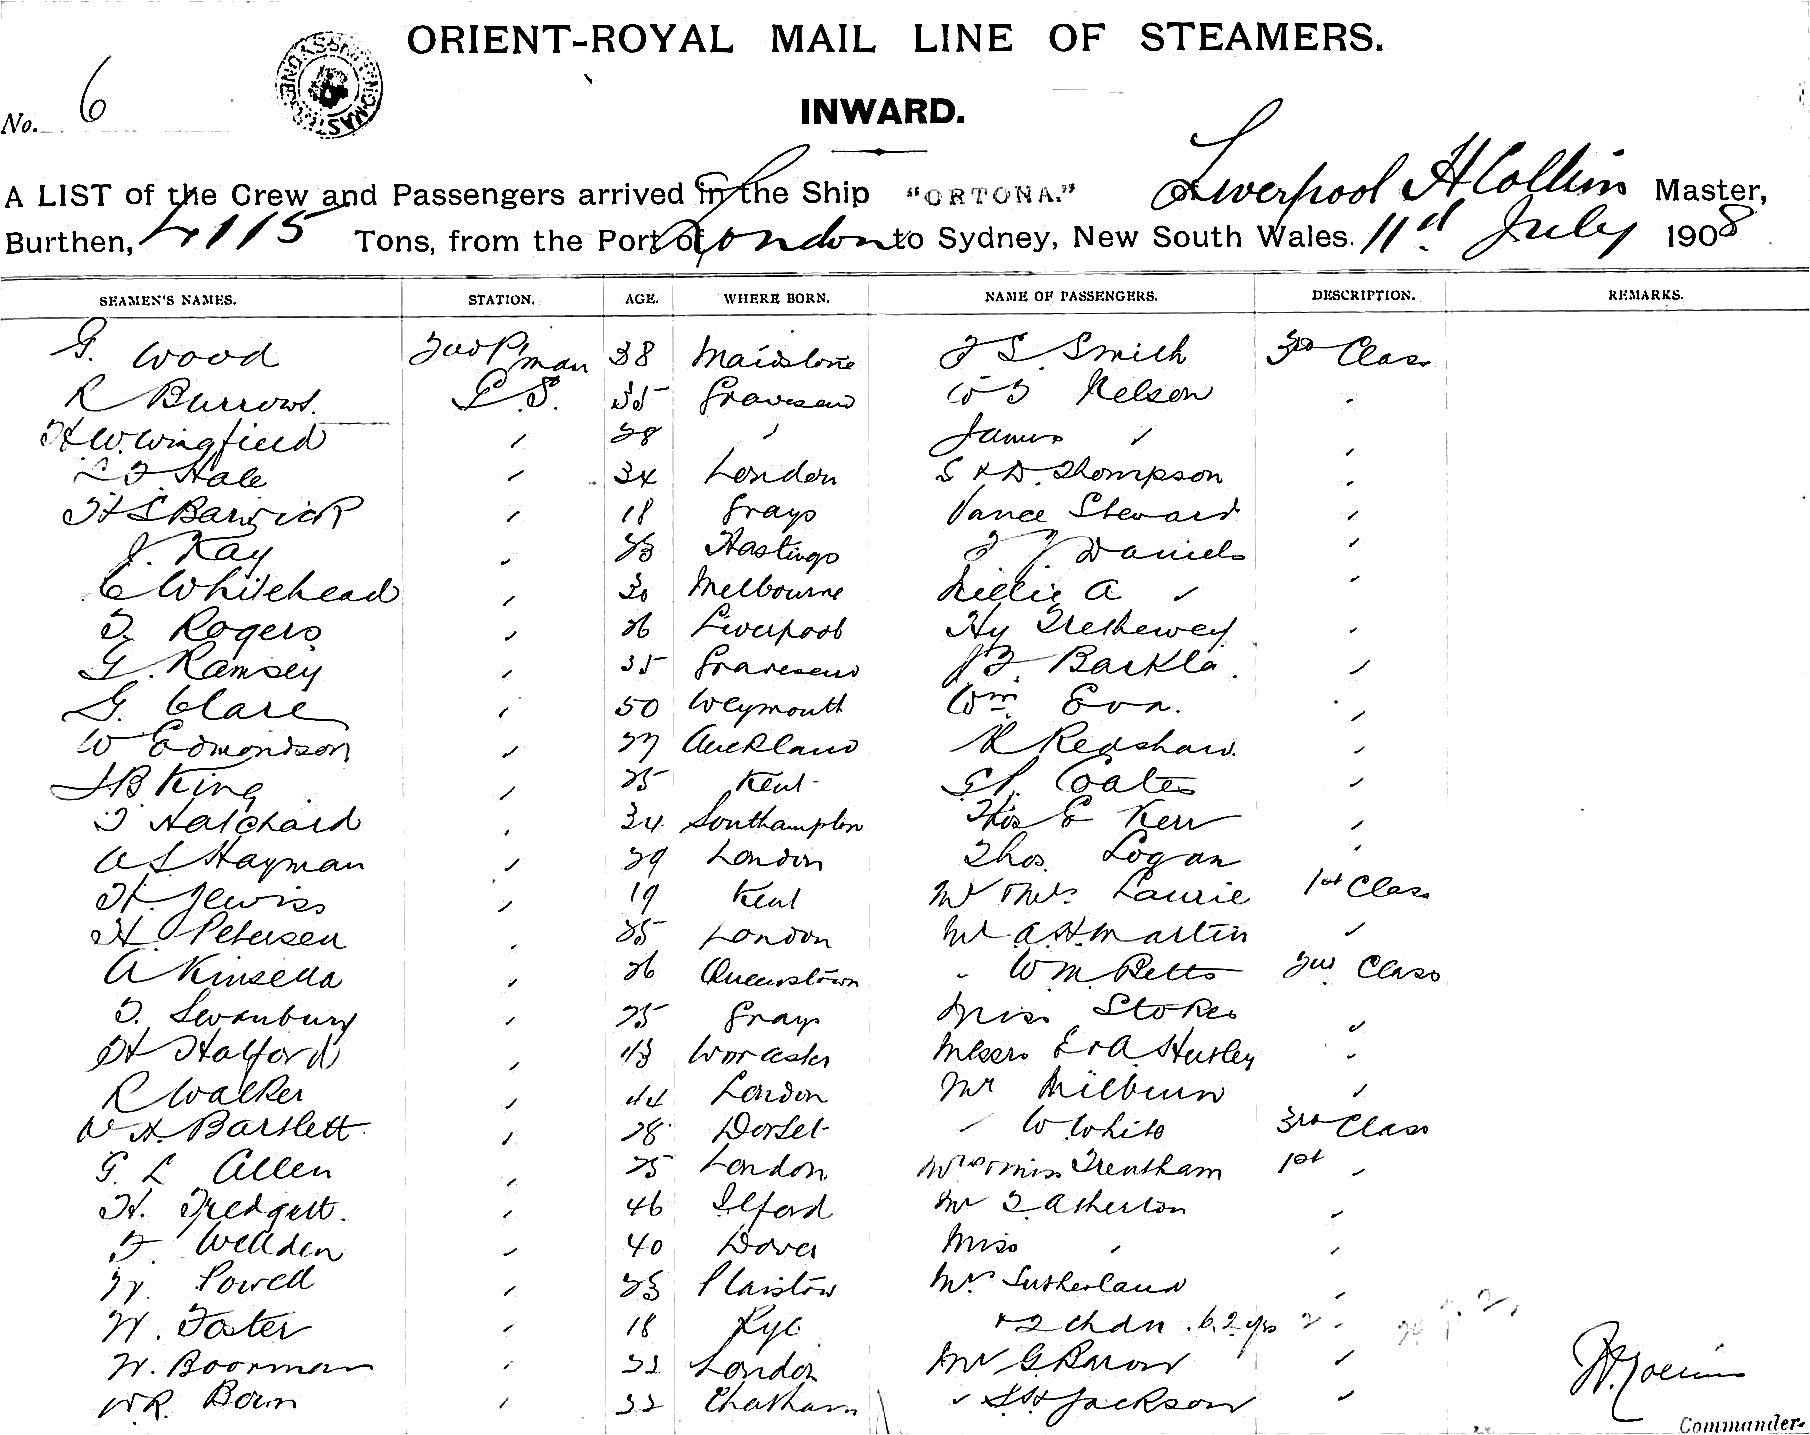 ORIENT-ROYAL MAIL LINE OF STEAMERS.
No. 6
INWARD.
A LIST of the Crew and Passengers arrived in the Ship "ORTONA." of Liverpool H Collins Master,
Burthen, 4115 Tons, from the Port of London to Sydney, New South Wales. 11th July 1908
SEAMEN'S NAMES. STATION. AGE. WHERE BORN. NAME OF PASSENGERS. DESCRIPTION. REMARKS.
G. Wood man 38 Maidstone Smith 3rd Class
R Burrows. G.S. 35 Gravesend Nelson "
H W. Wingfield " 28 " James " "
Hale " 34 London Thompson "
H S Barwick " 18 Grays Vance Steward "
J. Kay " 23 Hastings Daniels "
C Whitehead " 30 Melbourne Lillie A " "
T. Rogers " 26 Liverpool Hy Trethewey "
G. Ramsey " 35 Gravesend Barkla. "
G. Clare " 50 Weymouth Wm Eva. "
W Edmondson " 27 Auckland R Redshaw. "
J B King " 25 Kent Coates "
T Hatchard " 34 Southampton Thos E Kerr "
A S Hayman " 29 London Thos. Logan "
H. Jewiss " 19 Kent Mr & Mrs. Laurie 1st Class
H. Petersen " 25 London Mr A. H. Martin "
A Kinsella " 26 Queenstown " W M Betts 2nd Class
T. Swanbury " 25 Grays Miss Stokes "
H Halford " 43 Worcester Messrs E & A Hurley "
R Walker " 44 London Mr Milburn "
W H. Bartlett " 28 Dorset " W White 3rd Class
G. L Allen " 25 London Mrs & Miss Trentham 1st "
H. Fredgett. " 46 Ilford Mr T Atherton "
F. Wellden " 40 Dover Miss " "
W. Powell " 23 Plaistow Mrs Sutherland "
W. Foster " 18 Rye & 2 chdn. 6. 2 yrs 2 "
W. Boorman " 22 London Mr G. Baron "
W R. Born " 22 Chatham " Jackson "
H. Collins
Commander.